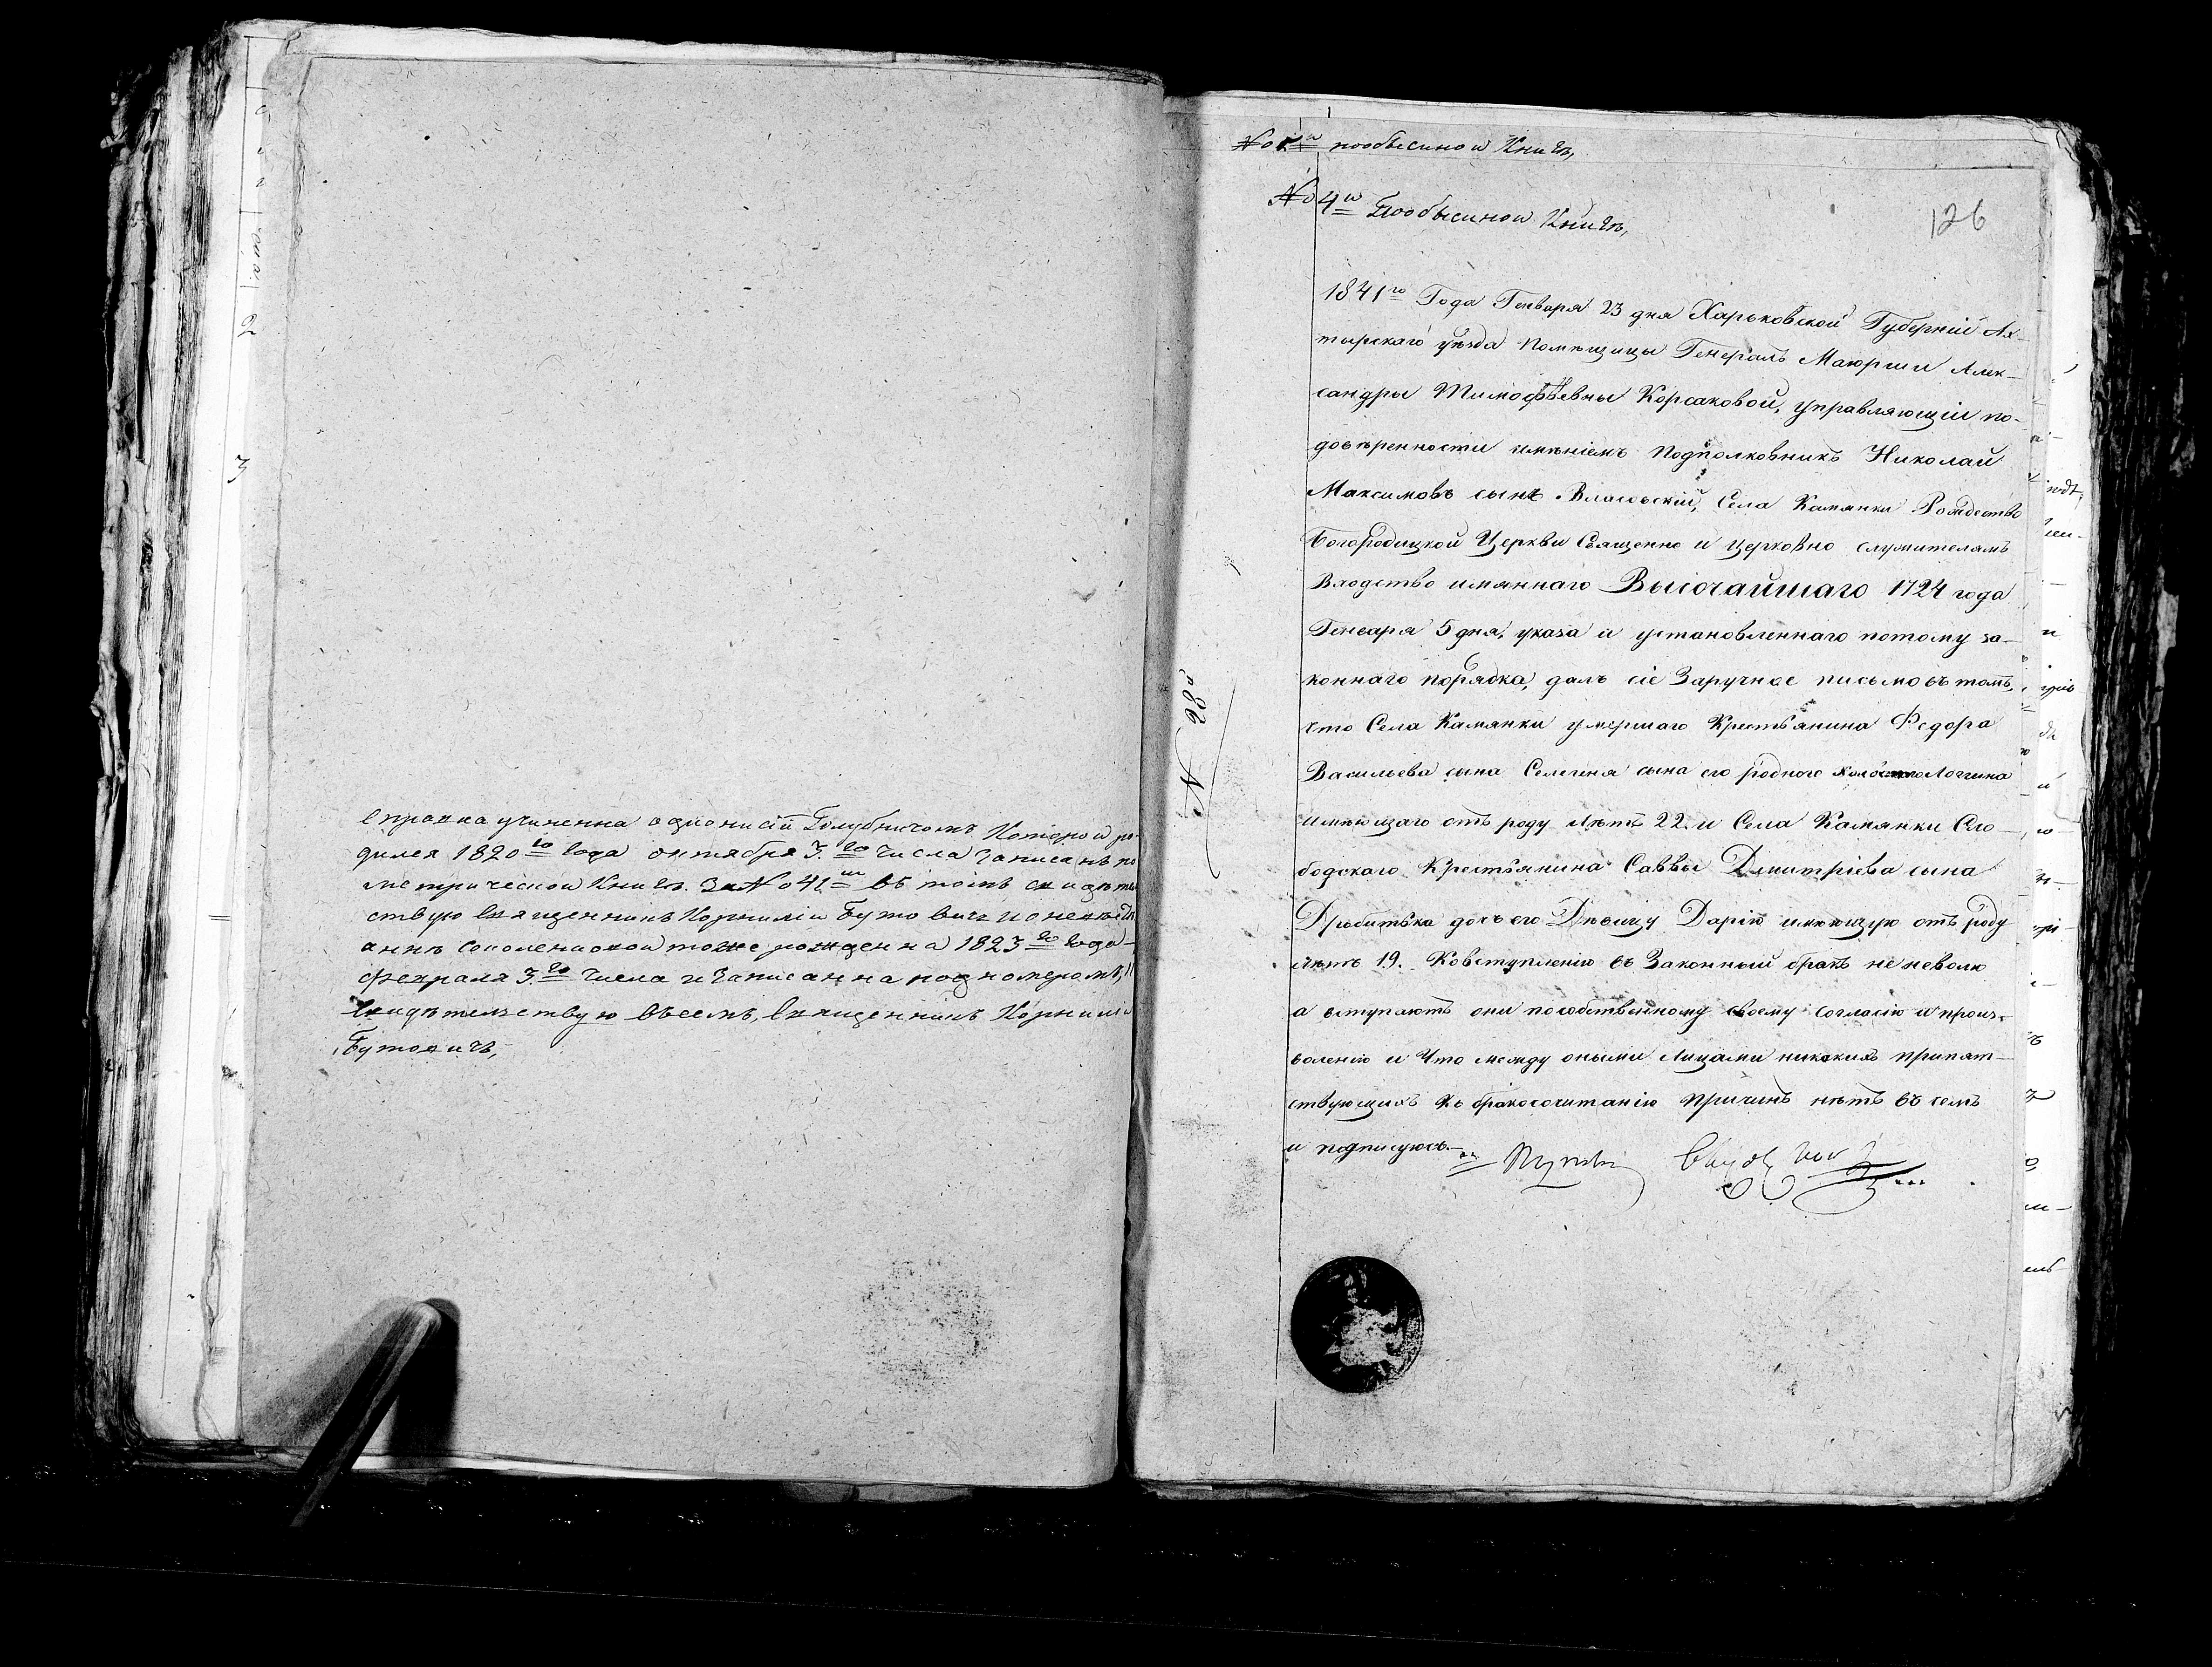 справка учиненна о дионисїи Голубничомъ Которой ро
дился 1820го Года октября 3.го Числа Записанъ по
метрической Книгѣ. За №о 41.мъ Въ томъ свидѣтель
ствую Священникъ Корнилiи Бутовичь и о невѣстѣ
аннѣ соколенковой тоже рожденна 1823го Года
февраля 3.го Числа и Записанна под номеромъ, 11
свидѣтельствую Въсемъ, Священникъ Корнилiи
Бутовичъ,
№о 1й пообысиной Книгѣ,
№о 4й Пообысиной Книгѣ,
126
1841го Года Генваря 23 дня Харьковской Губернiи Ах-
тирскаго уѣзда Помѣщицы Генералъ Маiорши Алек-
сандры Тимофѣевны Корсаковой, управляющiи по-
довѣренности имѣнiемъ Подполковникъ Николай
Максимовъ сынъ Села Камянки Рождество
Богородицкой Церкви Священно и церковно служителямъ
Входство имяннаго Высочайшаго 1724 года
Генваря 5 дня, указа и установленнаго потому за-
коннаго порядка, далъ сiе Заручное письмо въ томъ,
что Села Камянки умершаго Крестьянина Федора
Васильева сына Селегеня сына его родного холостого Логгина
имѣющаго отъ роду лѣтъ 22. и Села Камянки Сло-
бодскаго Крестьянина Саввы Дмитрiева сына
Дробитька дочь его Дѣвицу Дарiю имѣющую отъ роду
лѣтъ 19. Ковступленiю въ Законный бракъ неневолю
а вступаютъ они пособственному своему согласiю и произ-
воленiю и что между оными Лицами никакихъ припят-
ствующихъ къ бракосочитанiю причинъ нѣтъ въ семъ
и подписуюсь.